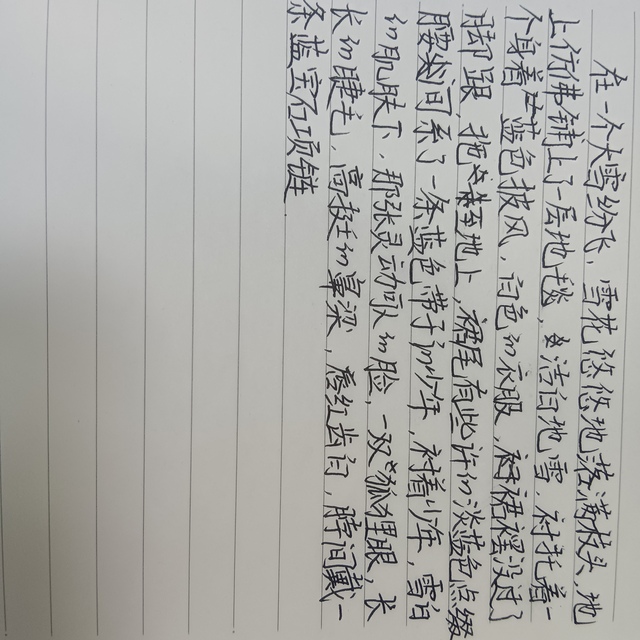 在一个大雪纷飞，雪花悠悠地落满枝头，地
上仿佛铺上了一层地毯，洁白地雪，衬托着一
个身着蓝色披风，白色的衣服，裙摆没过了
脚跟，拖至地上，裙尾有些许的淡蓝色点缀
腰间系了一条蓝色带子的少年，衬着少年，雪白
的肌肤下，那张灵动的脸，一双狐狸眼，长
长的睫毛，高挺的鼻梁，唇红齿白，脖间戴一
条蓝宝石项链